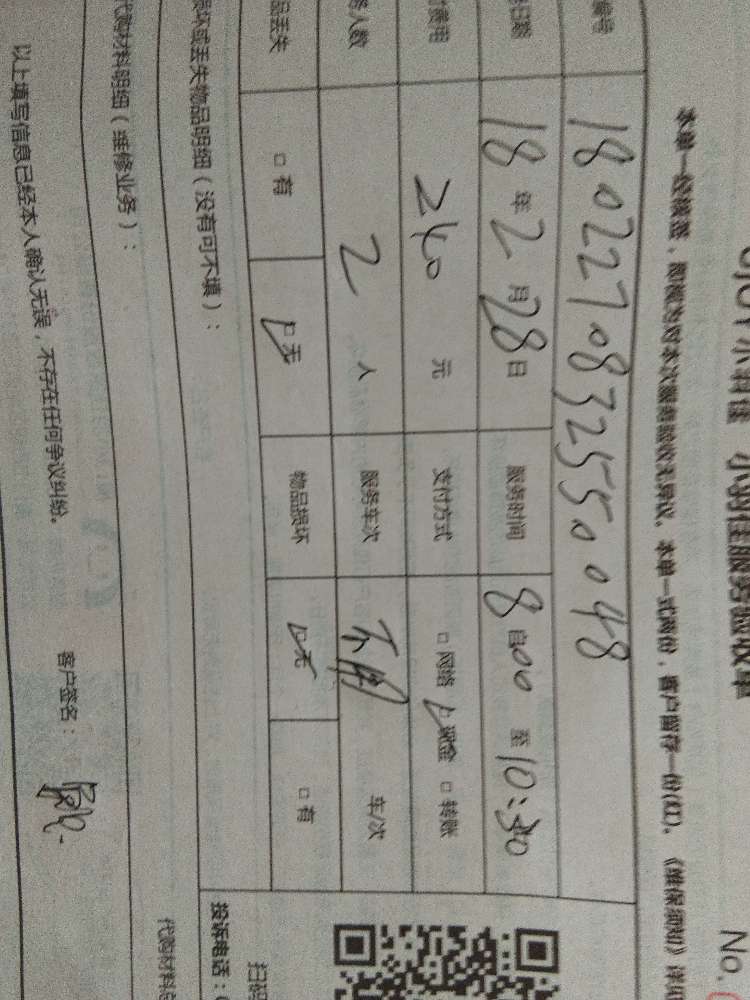 小村佳 小村佳服务验收单
No.
本单一经核签，即视为对本次服务验收无异议。本单一式两份，客户留存一份(红)。《维保须知》详
编号 18022708325550048
日期 18年2月28日 服务时间 8自00 至10:30
费用 240 元 支付方式 □网络 ☑现金 □转账
人数 2 人 服务车次 不用 车/次
品丢失 □有 ☑无 物品损坏 ☑无 □有
损坏或丢失物品明细（没有可不填）：
代购材料明细（维修业务）：
以上填写信息已经本人确认无误，不存在任何争议纠纷。
客户签名：
投诉电话：
扫码
代购材料